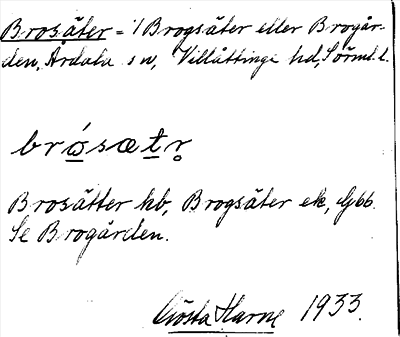 Brosäter = 1 Brogsäter eller Brogår-
den, Årdala sn, Villåttinge hd, Sörml. l.
brósætr
Brosätter hb, Brogsäter ek, Gbb.
Se Brogården.
Gösta Harne 1933.